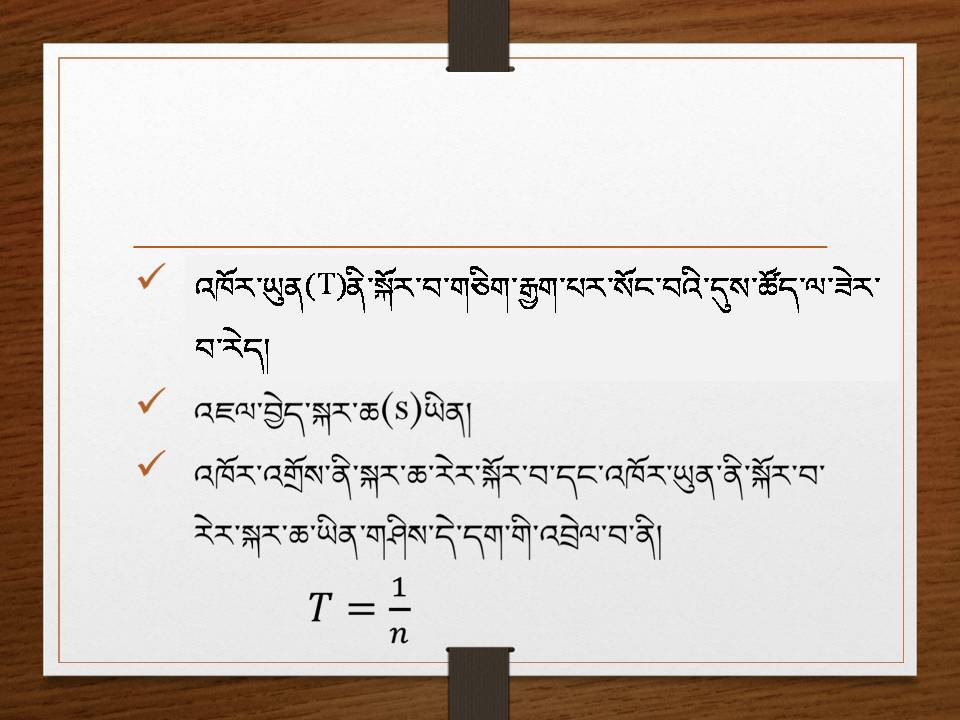 ✓ འཁོར་ཡུན(T)ནི་སྐོར་བ་གཅིག་རྒྱག་པར་སོང་བའི་དུས་ཚོད་ལ་ཟེར་
བ་རེད།
✓ འཇལ་བྱེད་སྐར་ཆ(s)ཡིན།
✓ འཁོར་འགྲོས་ནི་སྐར་ཆ་རེར་སྐོར་བ་དང་འཁོར་ཡུན་ནི་སྐོར་བ་
རེར་སྐར་ཆ་ཡིན་གཤིས་དེ་དག་གི་འབྲེལ་བ་ནི།
T = 1/n